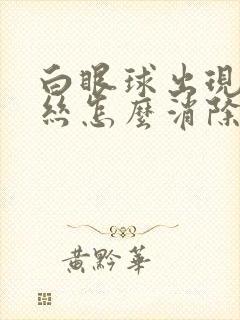 白眼球出現
絲怎麼消除
黃黔華